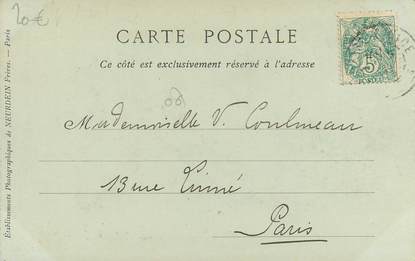 20€
CARTE POSTALE
Ce côté est exclusivement réservé à l'adresse
5
POSTES
Mademoiselle V.
13 rue Linné
Paris
Établissements Photographiques de NEURDEIN Frères. — Paris